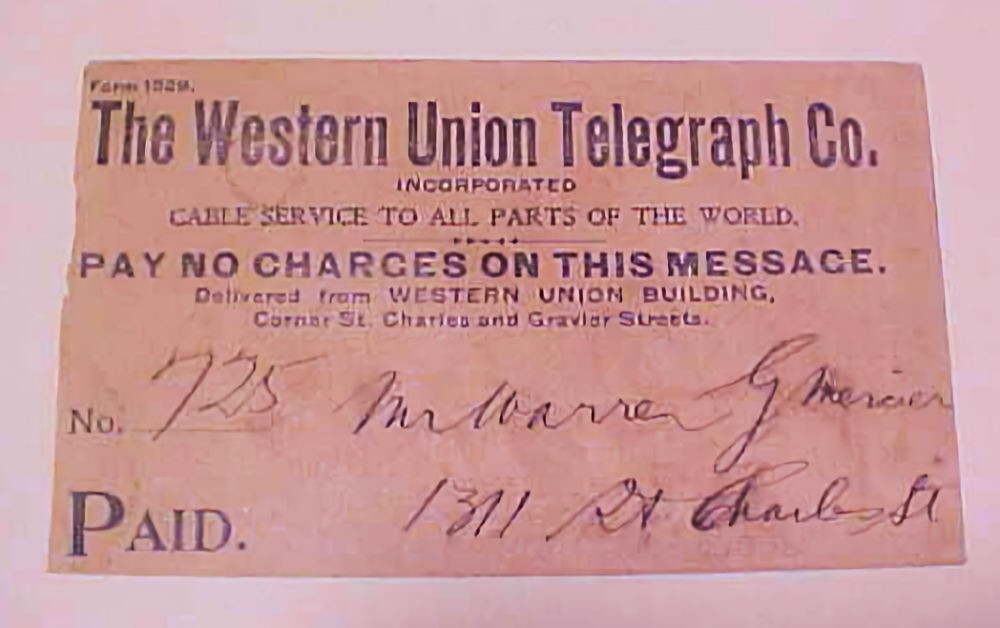 The Western Union Telegraph Co.
INCORPORATED
CABLE SERVICE TO ALL PARTS OF THE WORLD.
PAY NO CHARGES ON THIS MESSAGE.
Delivered from WESTERN UNION BUILDING,
Corner St. Charles and Gravier Streets.
No. 725 Mr Warren G Mercier
PAID. 1311 St Charles St